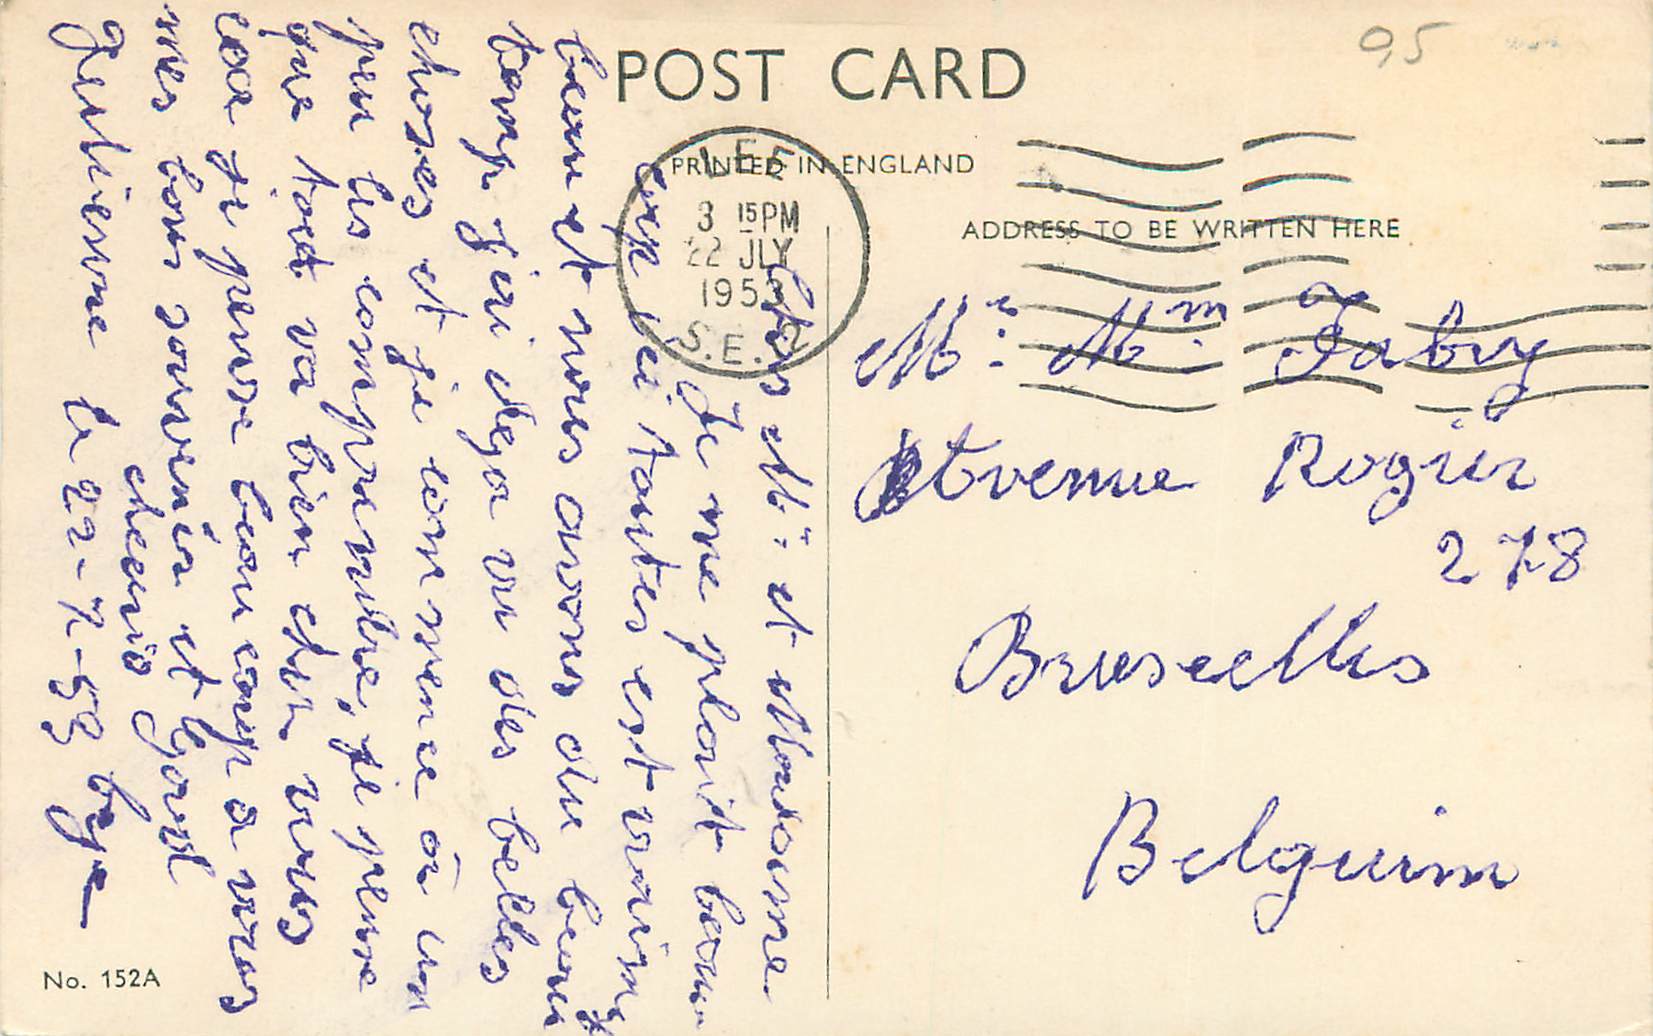 95
POST CARD
PRINTED IN ENGLAND
ADDRESS TO BE WRITTEN HERE
LEE
3 15 PM
22 JLY
195
S.E.
Mr: Mm. Fabry
Avenue Rogier
278
Bruxelles
Belguim
Mr: et Madame
Je me plait beau
coup ici toutes est vraiment
beau et nous avons du beau
temp j'ai deja vu des belles
choses et je commence à un
peu les comprendre, je pense
que tout va bien chez vous
car je pense beaucoup a vous
mes bons souvenir et Good
cheerio
Justienne le 22-7-53 bye
No. 152A